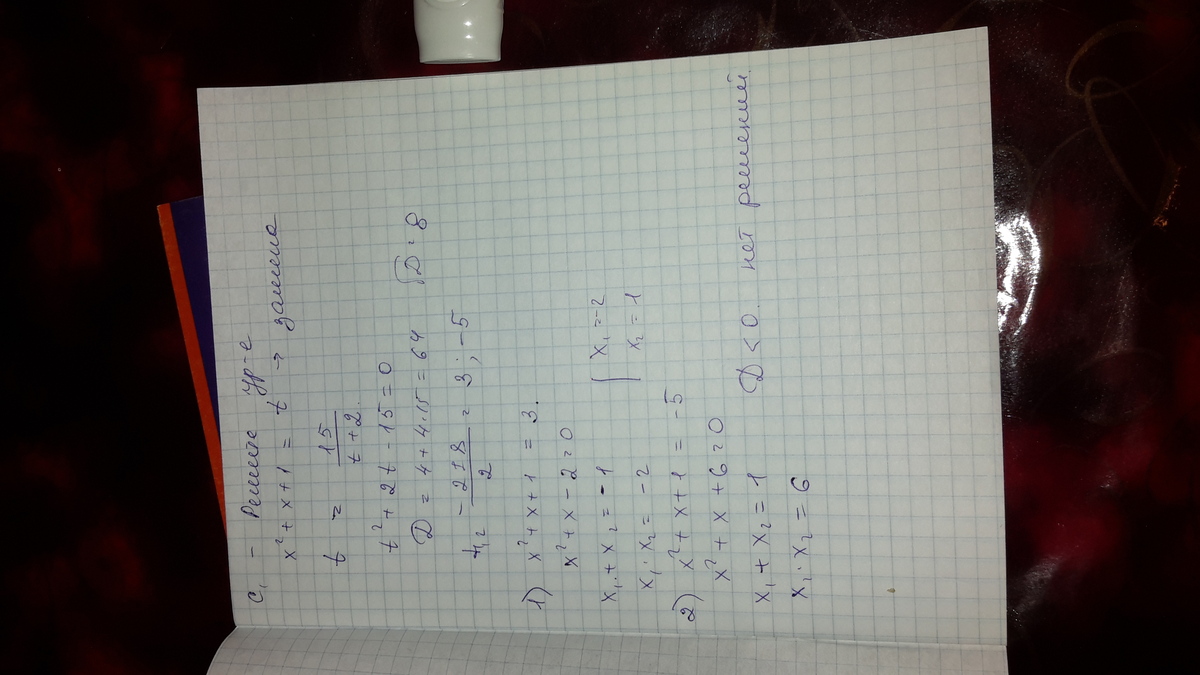 C₁ – Решите ур-е
x² + x + 1 = t → замена
t = 15/(t+2).
t² + 2t - 15 = 0
D = 4 + 4·15 = 64 √D = 8
t₁,₂ = (-2±8)/2 = 3; -5
1) x² + x + 1 = 3.
x² + x - 2 = 0
x₁ + x₂ = -1 [ x₁ = -2
x₁ · x₂ = -2 x₂ = 1
2) x² + x + 1 = -5
x² + x + 6 = 0
x₁ + x₂ = 1 D < 0. нет решений.
x₁ · x₂ = 6